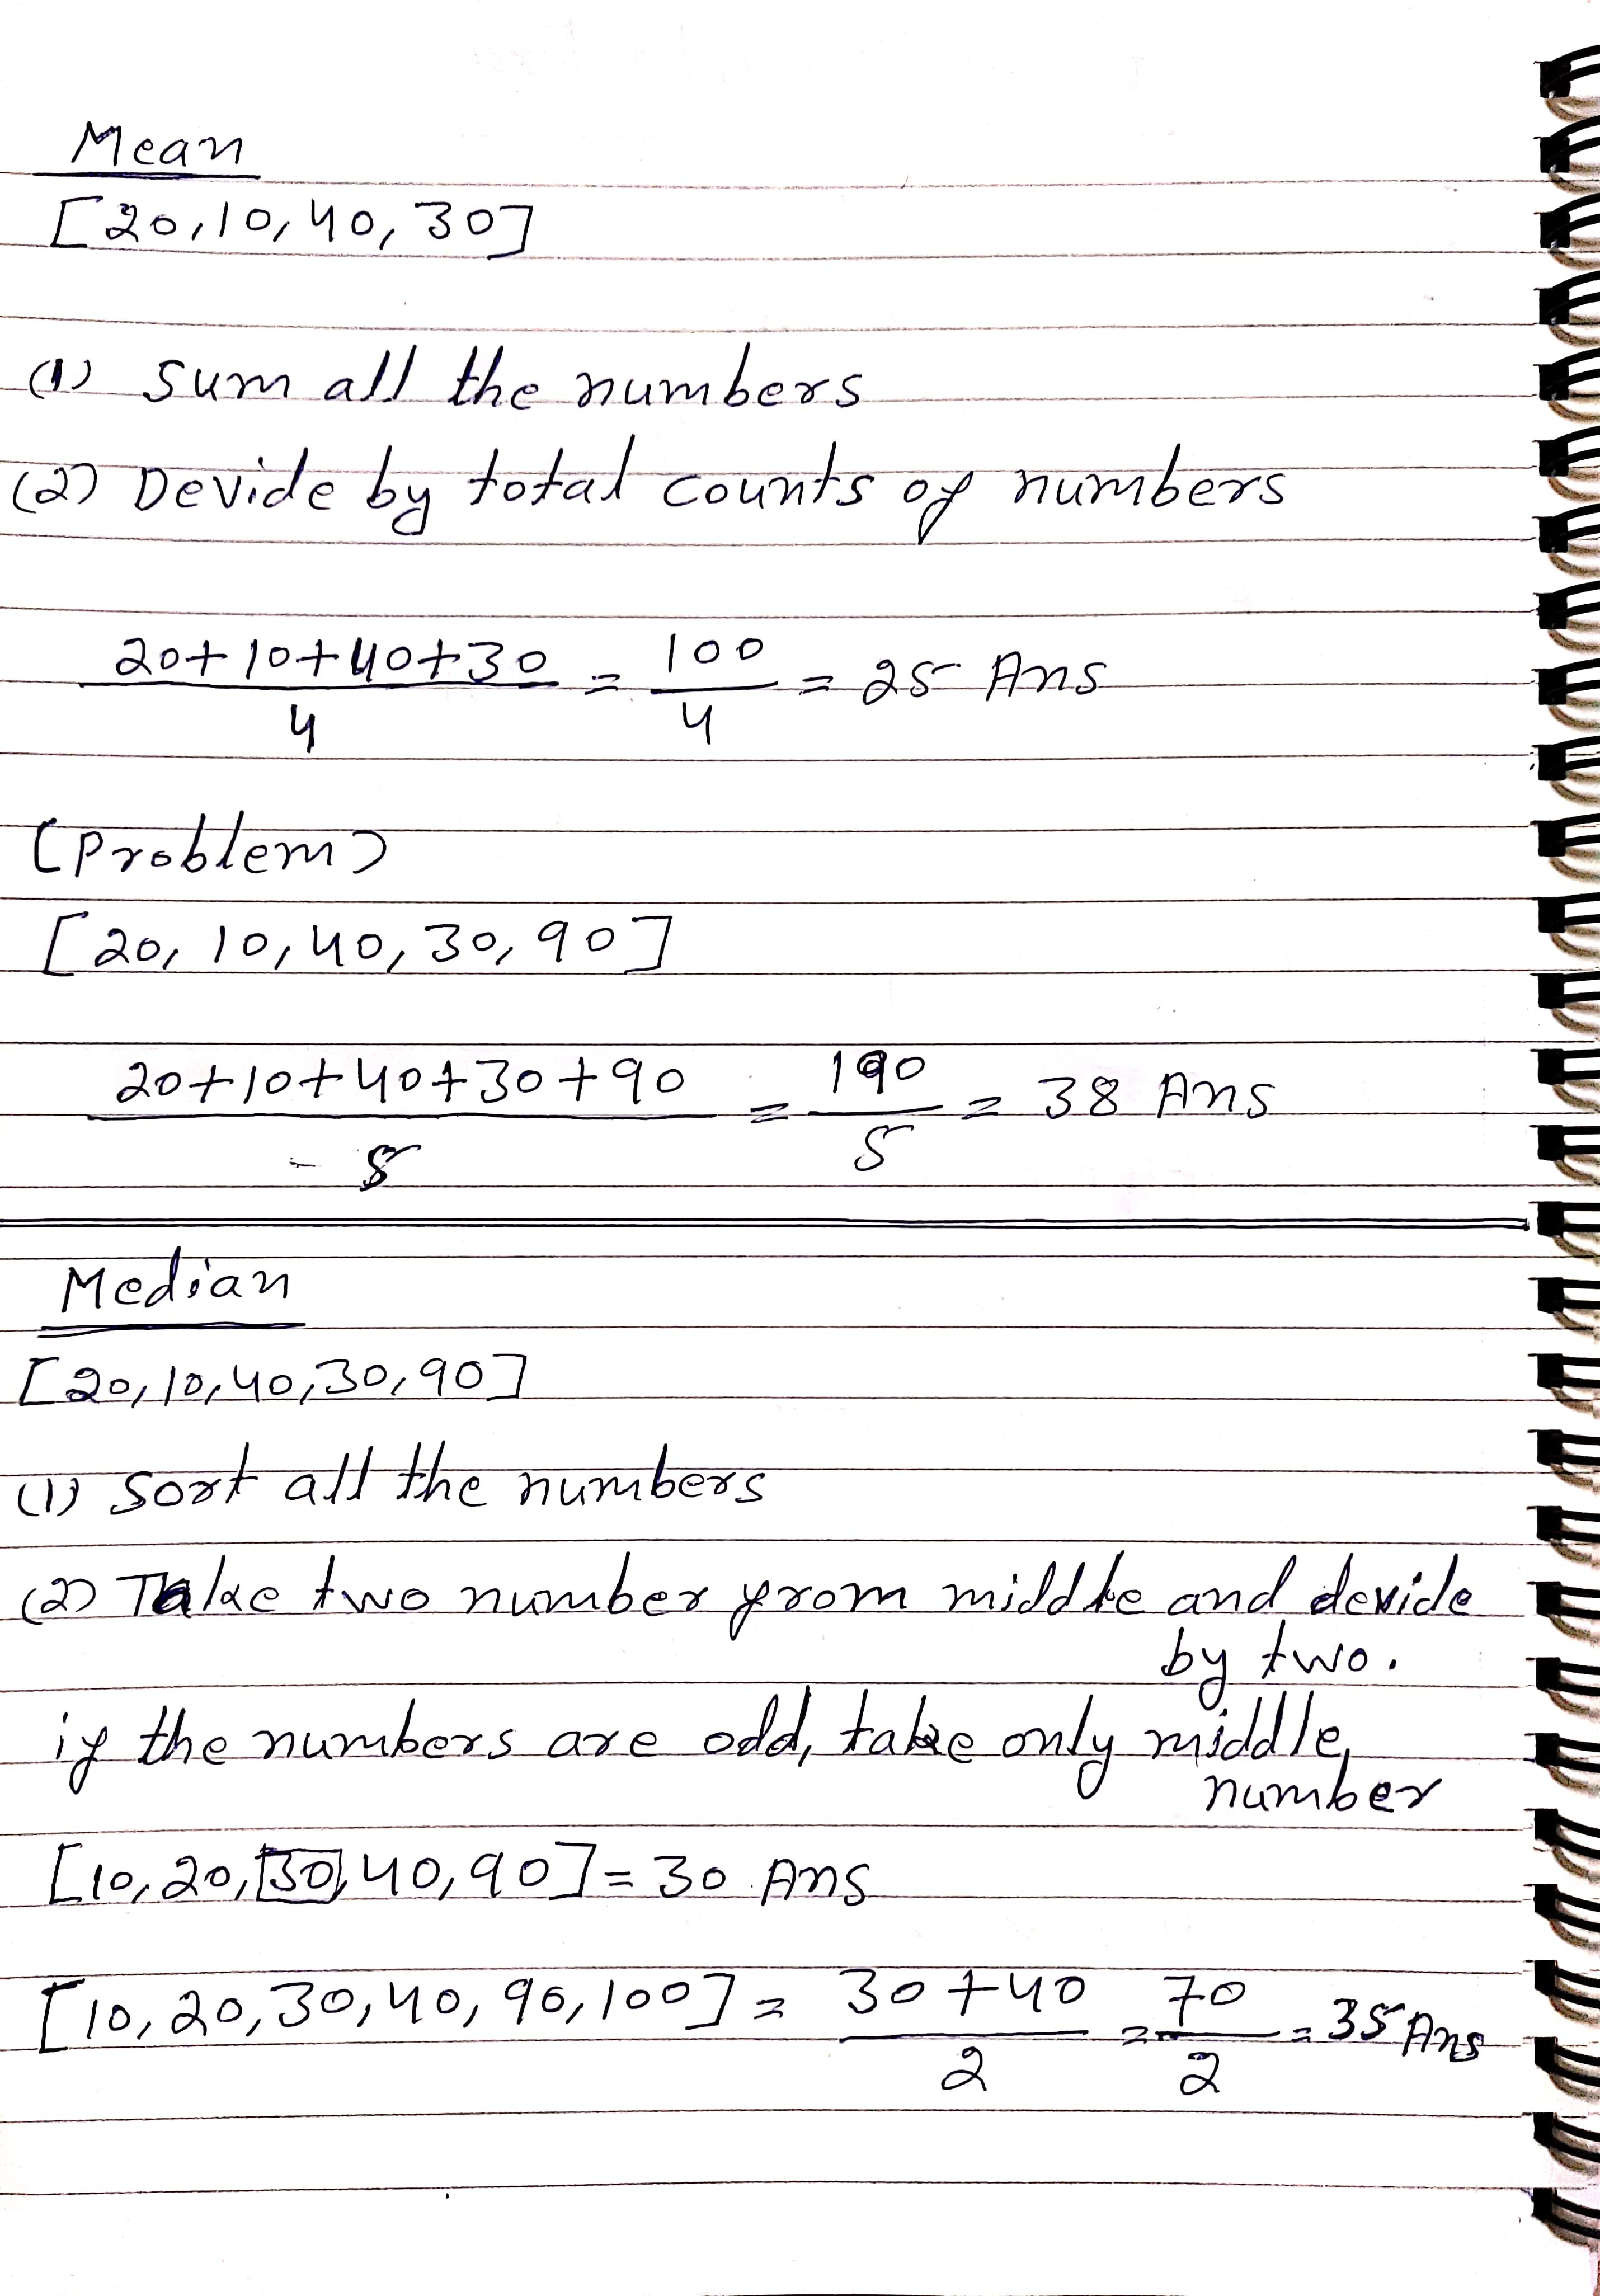 Mean
[20,10,40,30]
(1) Sum all the numbers
(2) Devide by total counts of numbers
20+10+40+30 = 100 = 25 Ans
4 4
(Problem)
[20, 10, 40, 30, 90]
20+10+40+30+90 = 190 = 38 Ans
5 5
Median
[20,10,40,30,90]
(1) Sort all the numbers
(2) Take two number from middle and devide
by two.
if the numbers are odd, take only middle
number
[10,20,30,40,90] = 30 Ans
[10,20,30,40,90,100] = 30+40 = 70 = 35 Ans
2 2